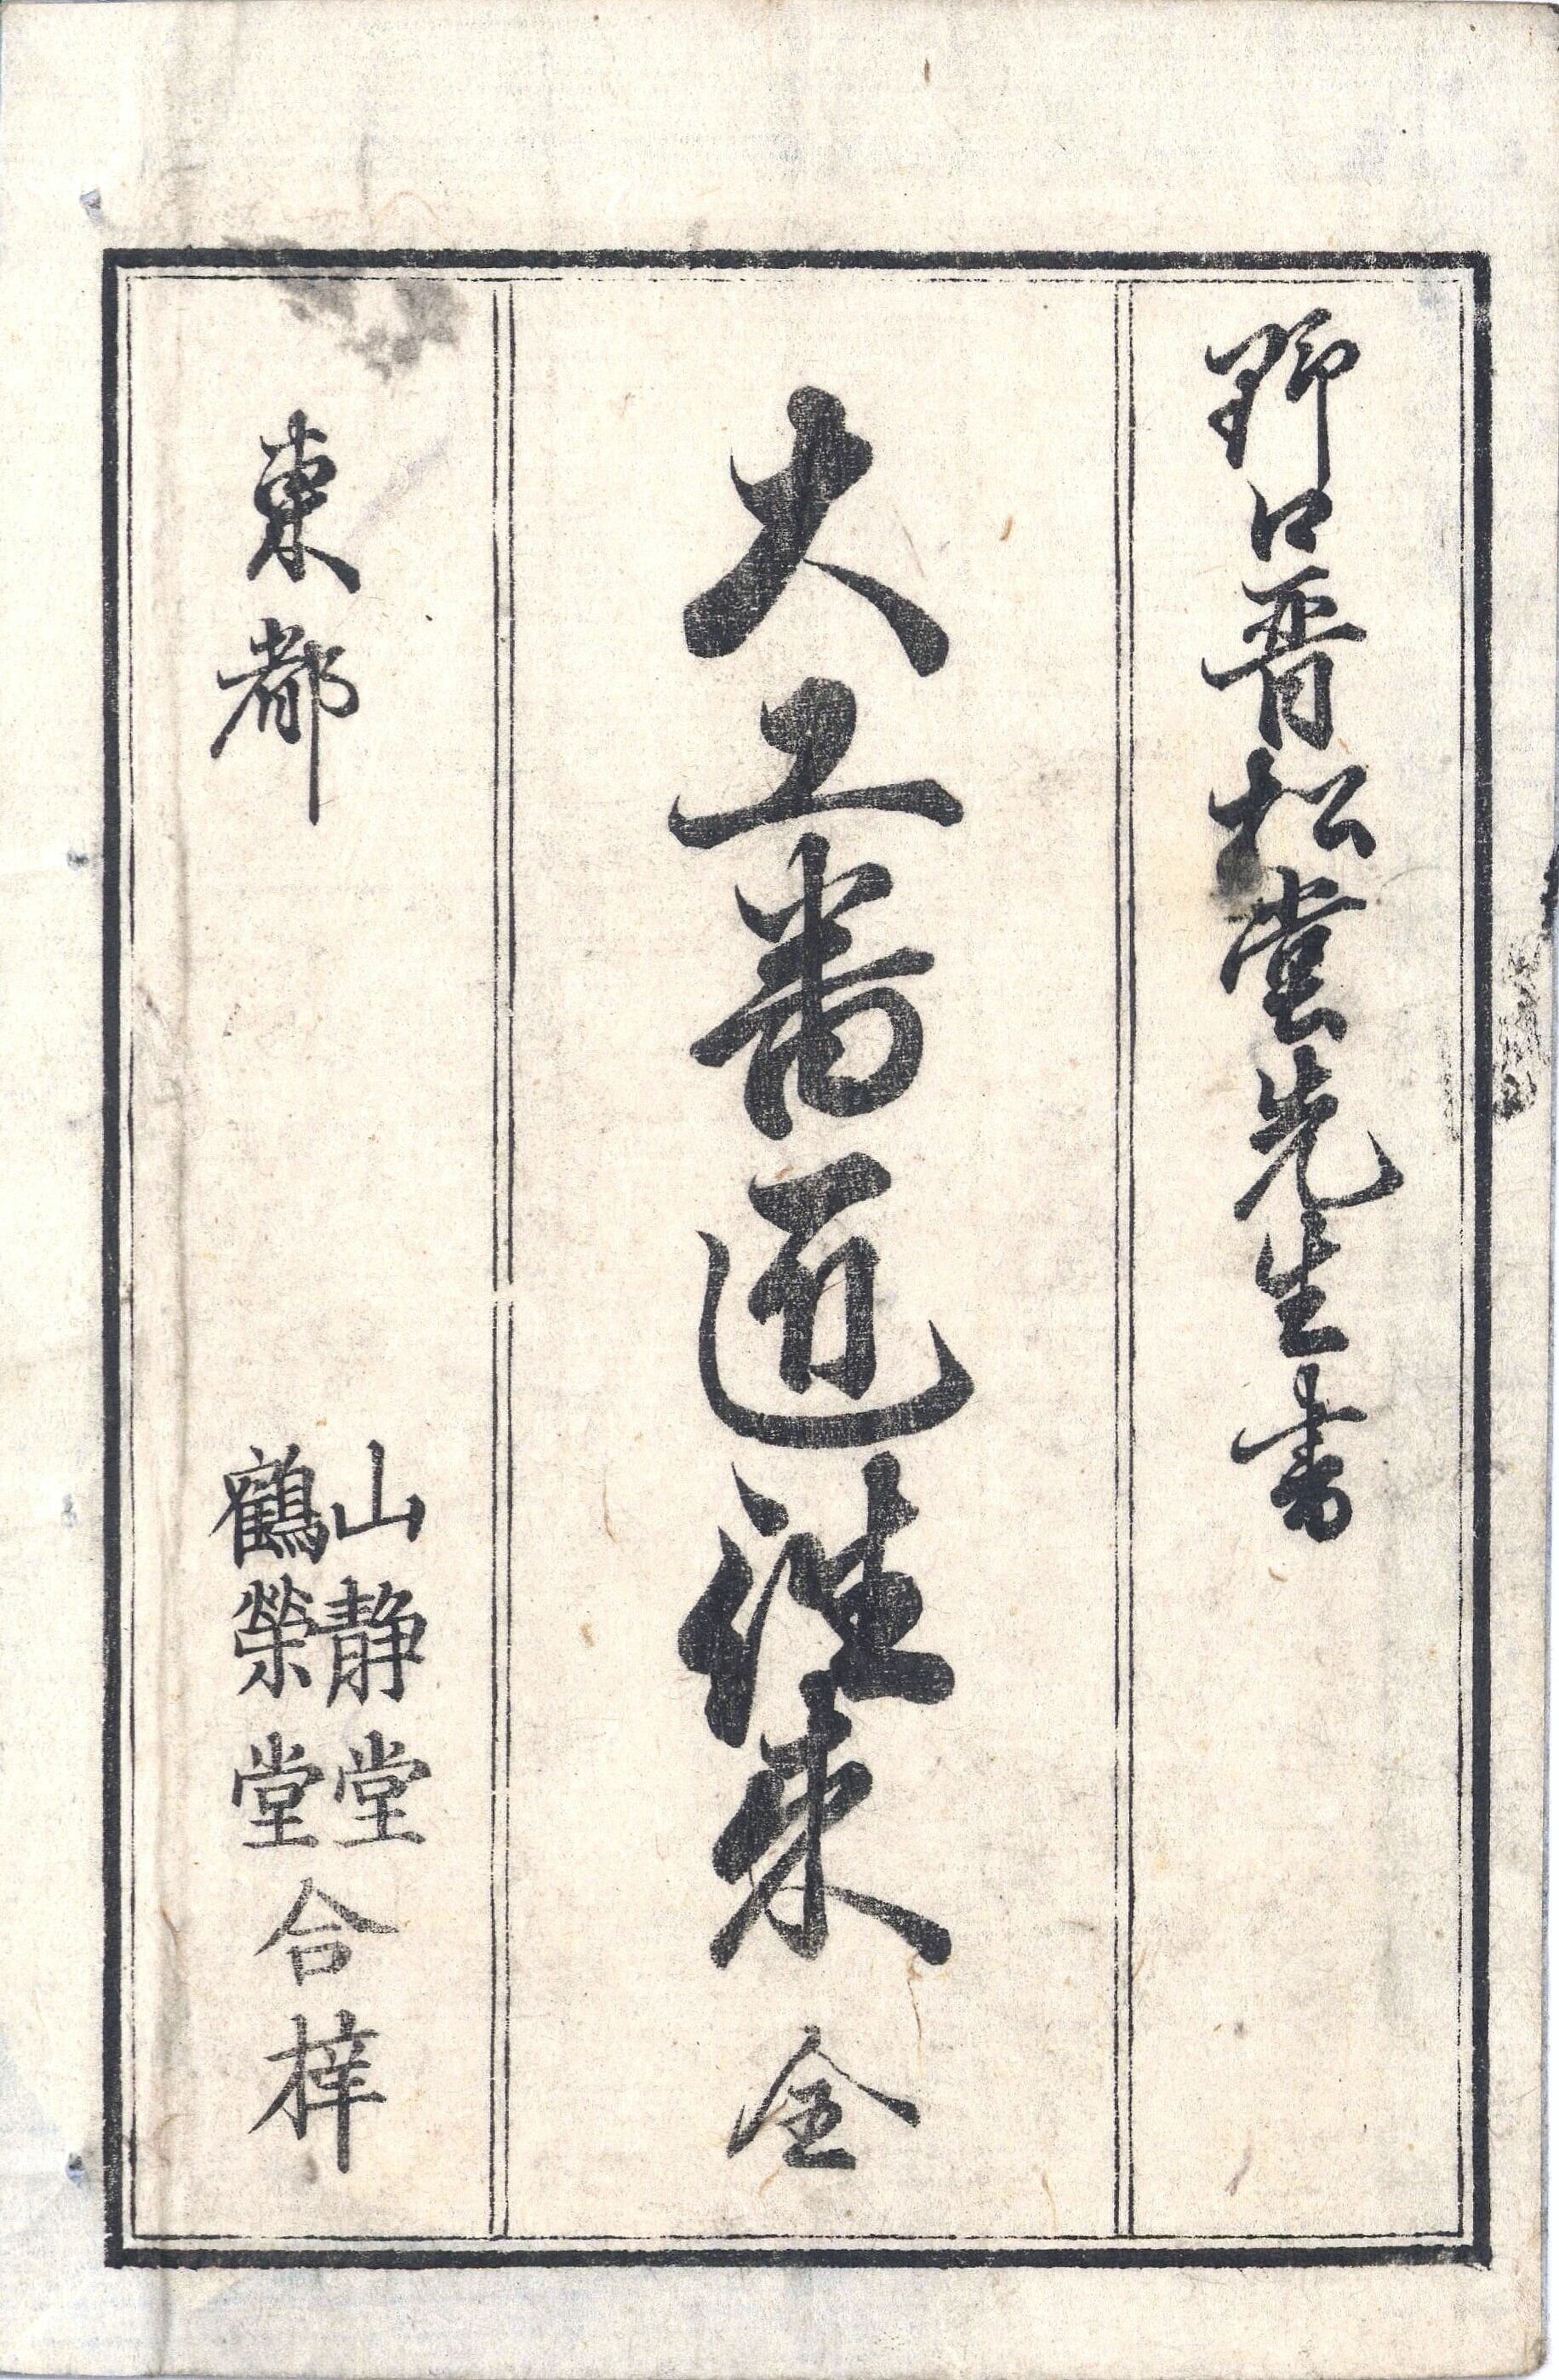 野口晋松堂先生書
大工番匠往来 全
東都
山静堂
鶴榮堂
合梓